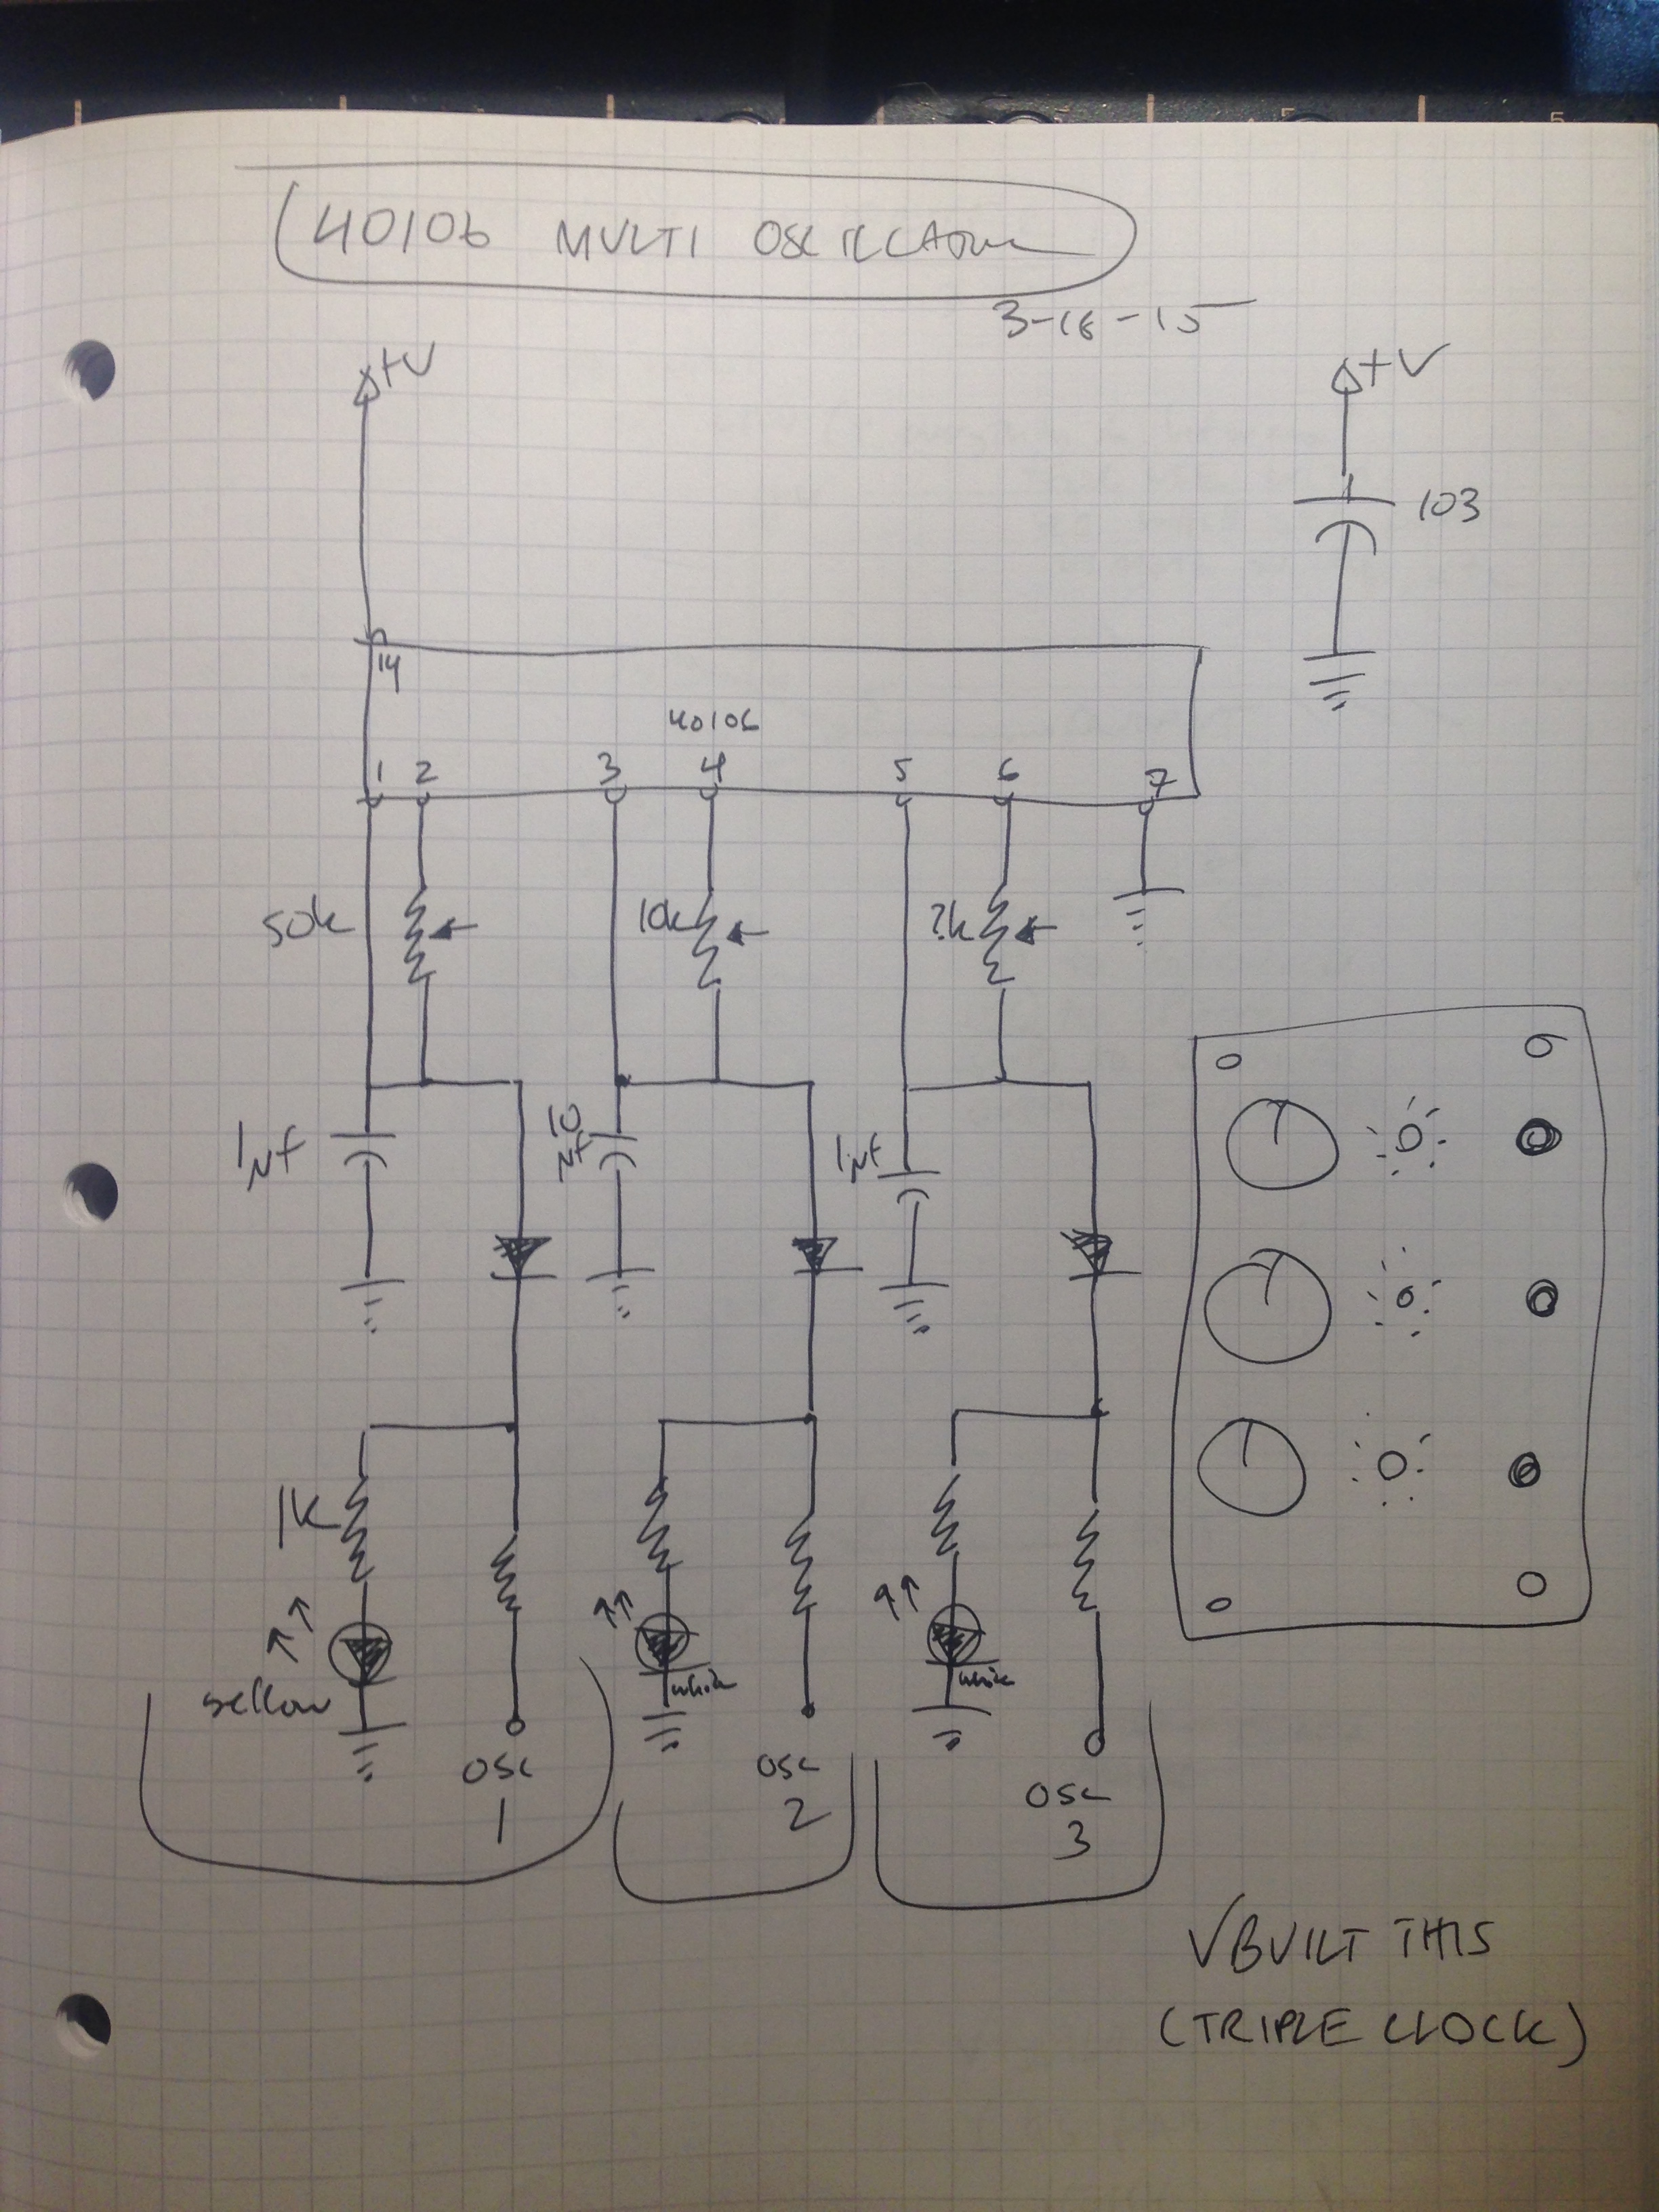 40106 MULTI OSCILLATOR
3-16-15
+V
+V
103
14
40106
1 2 3 4 5 6 7
50k
10k
?k
1µf
10
µf
1µf
1K
yellow
white
white
OSC
1
OSC
2
OSC
3
√BUILT THIS
(TRIPLE CLOCK)